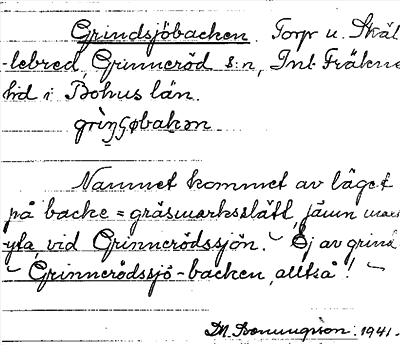 Grindsjöbacken. Torp u. Skäl
-lebred, Grinneröd s:n, Inl. Fräkne
hd i Bohus län.
grìŋʂøbakən
Namnet kommet av läget
på backe = gräsmarksslätt, jämn
yta, vid Grinnerödssjön. Ej av grind
Grinnerödssjö-backen, alltså!
1941.